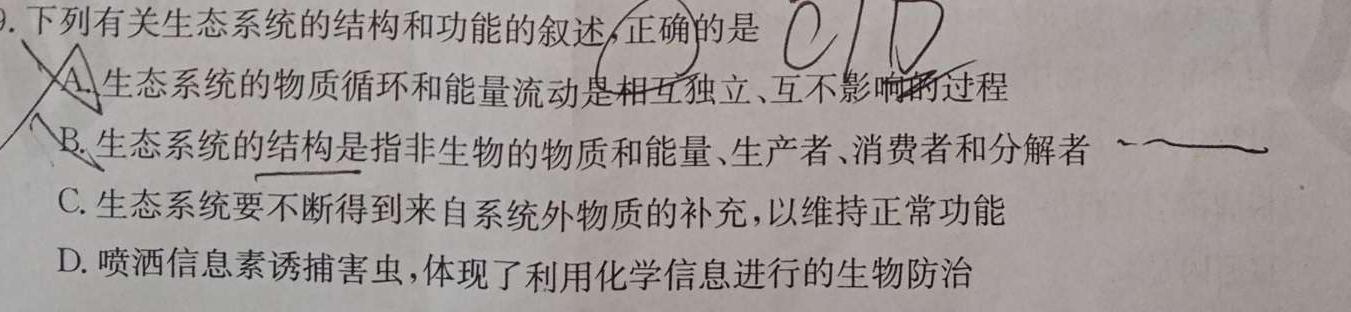 9. 下列有关生态系统的结构和功能的叙述,正确的是 C/D
A. 生态系统的物质循环和能量流动是相互独立、互不影响的过程
B. 生态系统的结构是指非生物的物质和能量、生产者、消费者和分解者
C. 生态系统要不断得到来自系统外物质的补充,以维持正常功能
D. 喷洒信息素诱捕害虫,体现了利用化学信息进行的生物防治